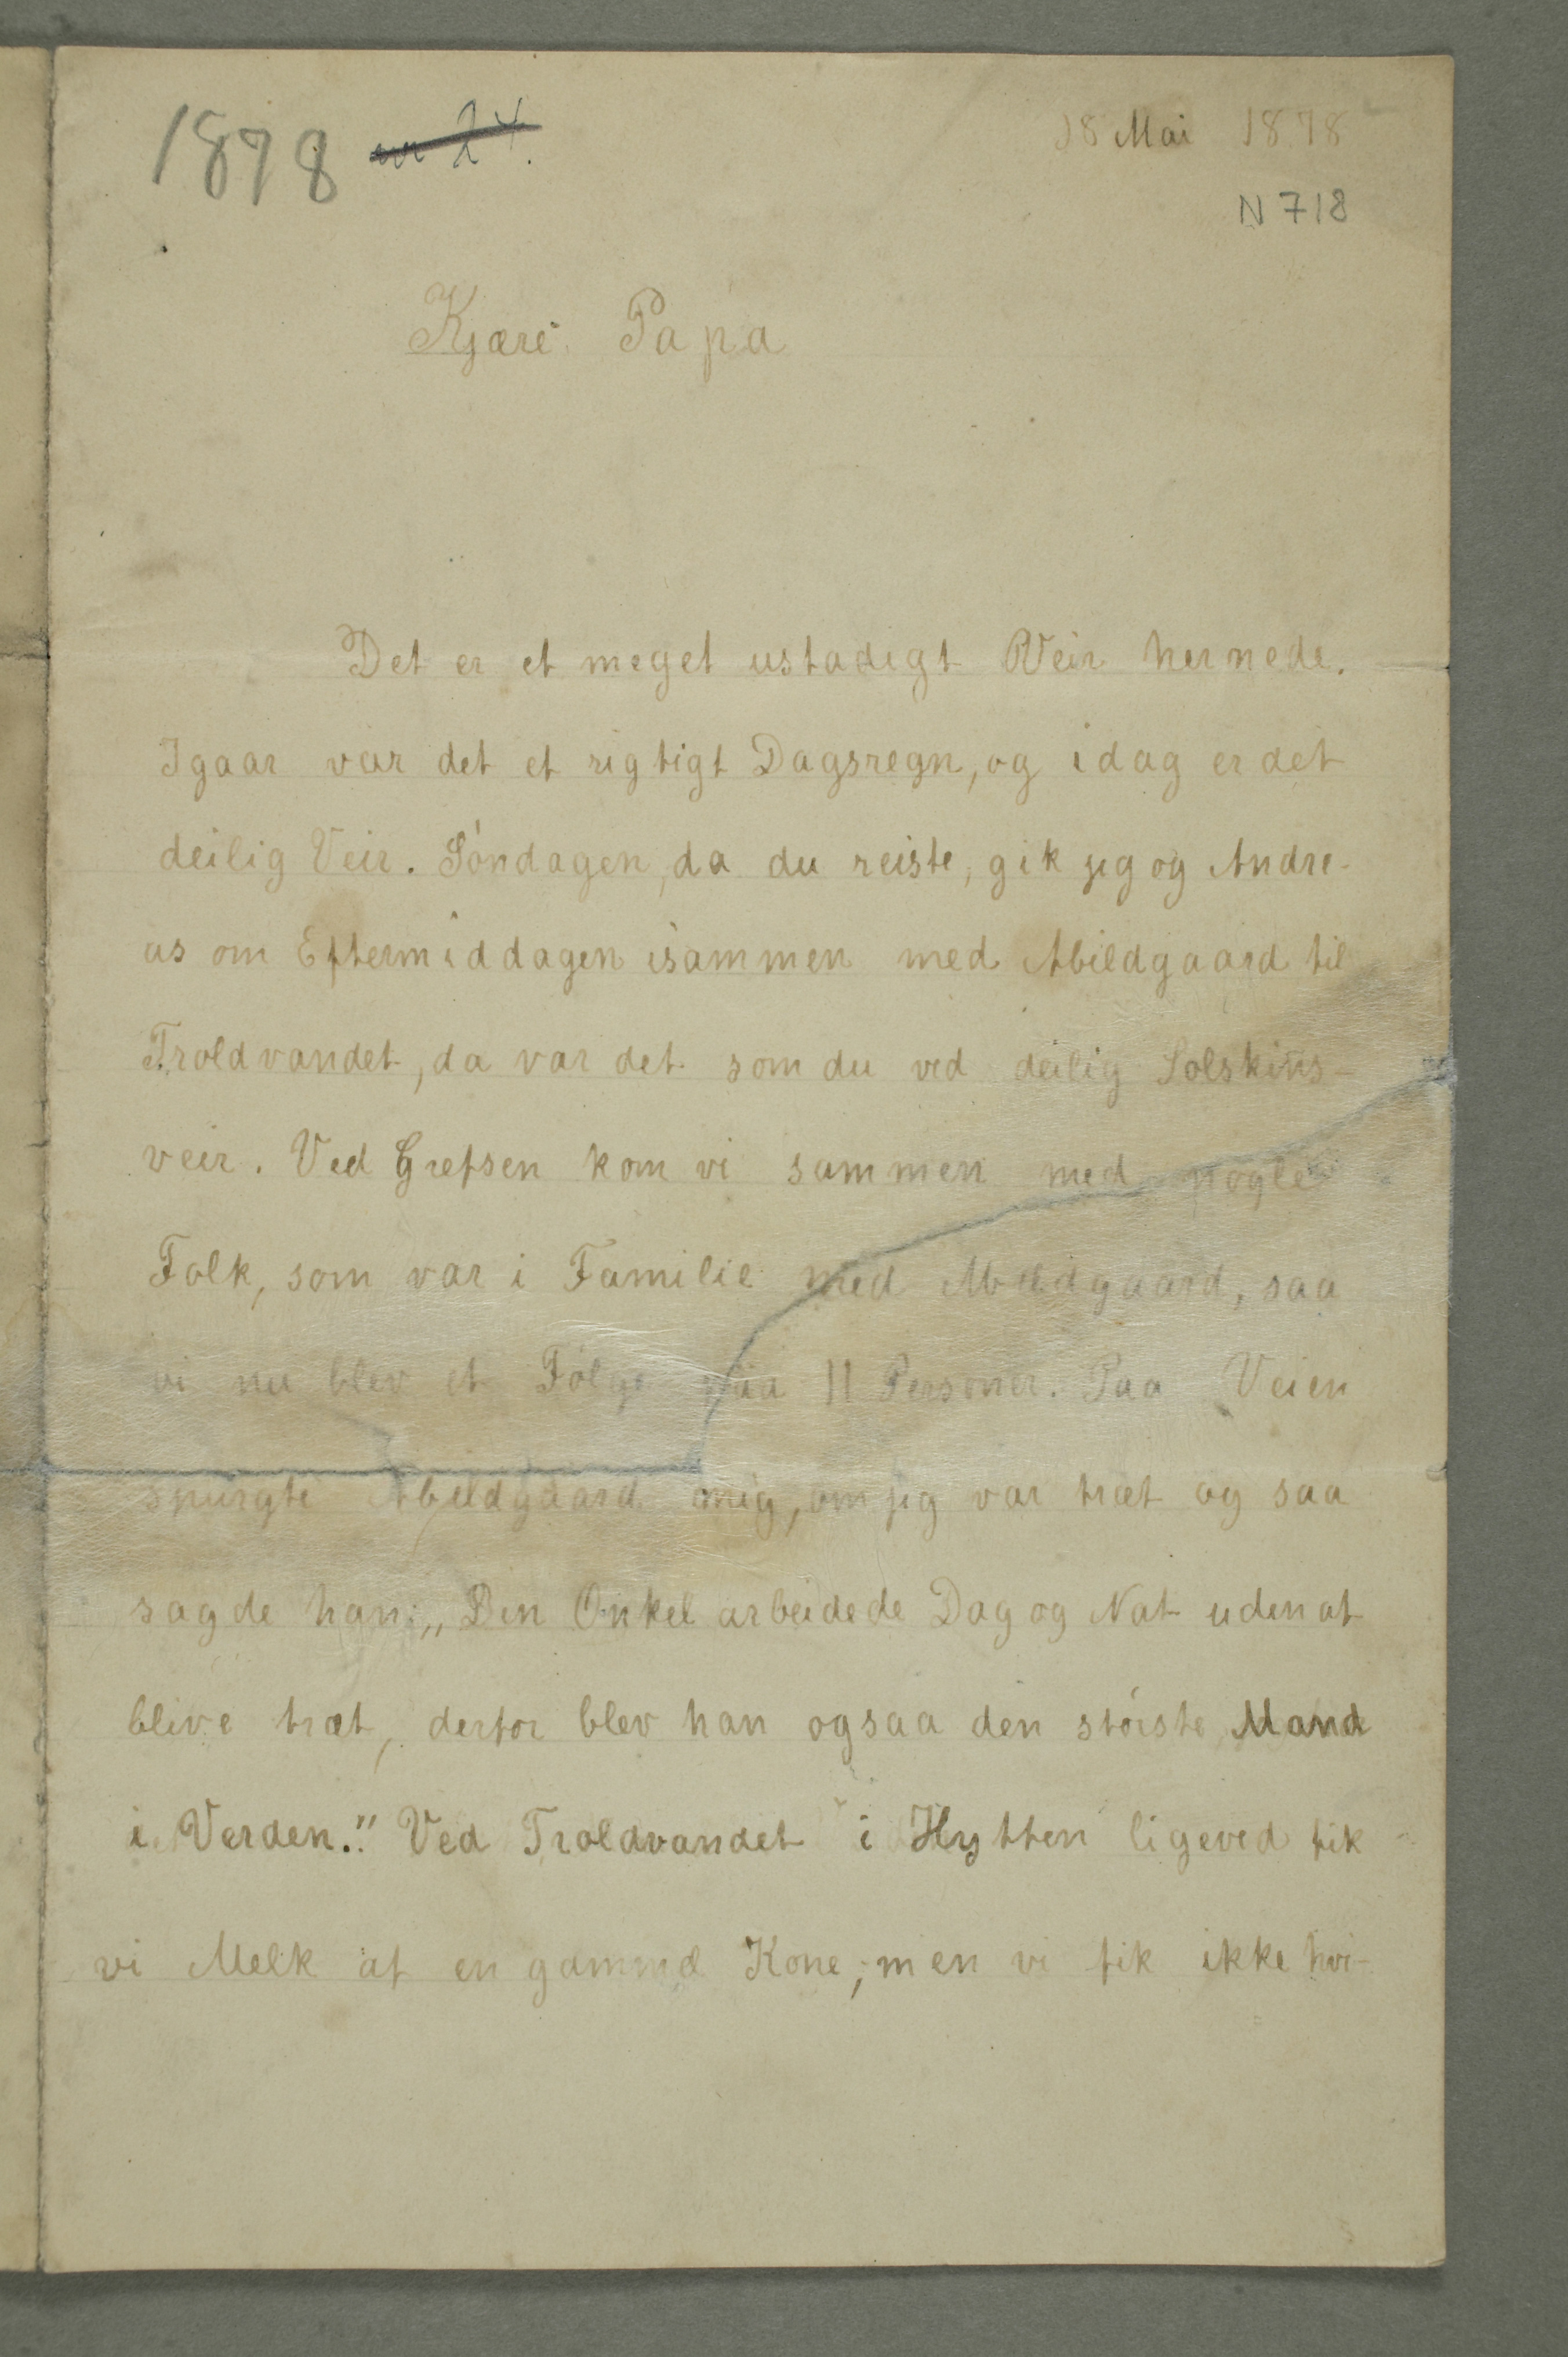 1878
18 Mai 1878
N 718
Kjære Papa
Det er et meget ustadigt Veir hernede.
Igaar var det et rigtigt Dagsregn, og idag er det
deilig Veir. Söndagen, da du reiste, gik jeg og Andre-
as om Eftermiddagen isammen med Abildgaard til
Troldvandet, da var det som du ved deilig Solskins-
veir. Ved Grefsen kom vi sammen med nogle
Folk, som var i Familie med Abildgaard, saa
vi nu blev et Følge paa 11 Personer. Paa Veien
spurgte Abildgaard mig, om jeg var træt og saa
sagde han: „Din Onkel arbeidede Dag og Nat uden at
blive træt, derfor blev han ogsaa den störste Mand
i Verden." Ved Troldvandet i Hytten ligeved fik
vi Melk af en gammel Kone; men vi fik ikke hvi-